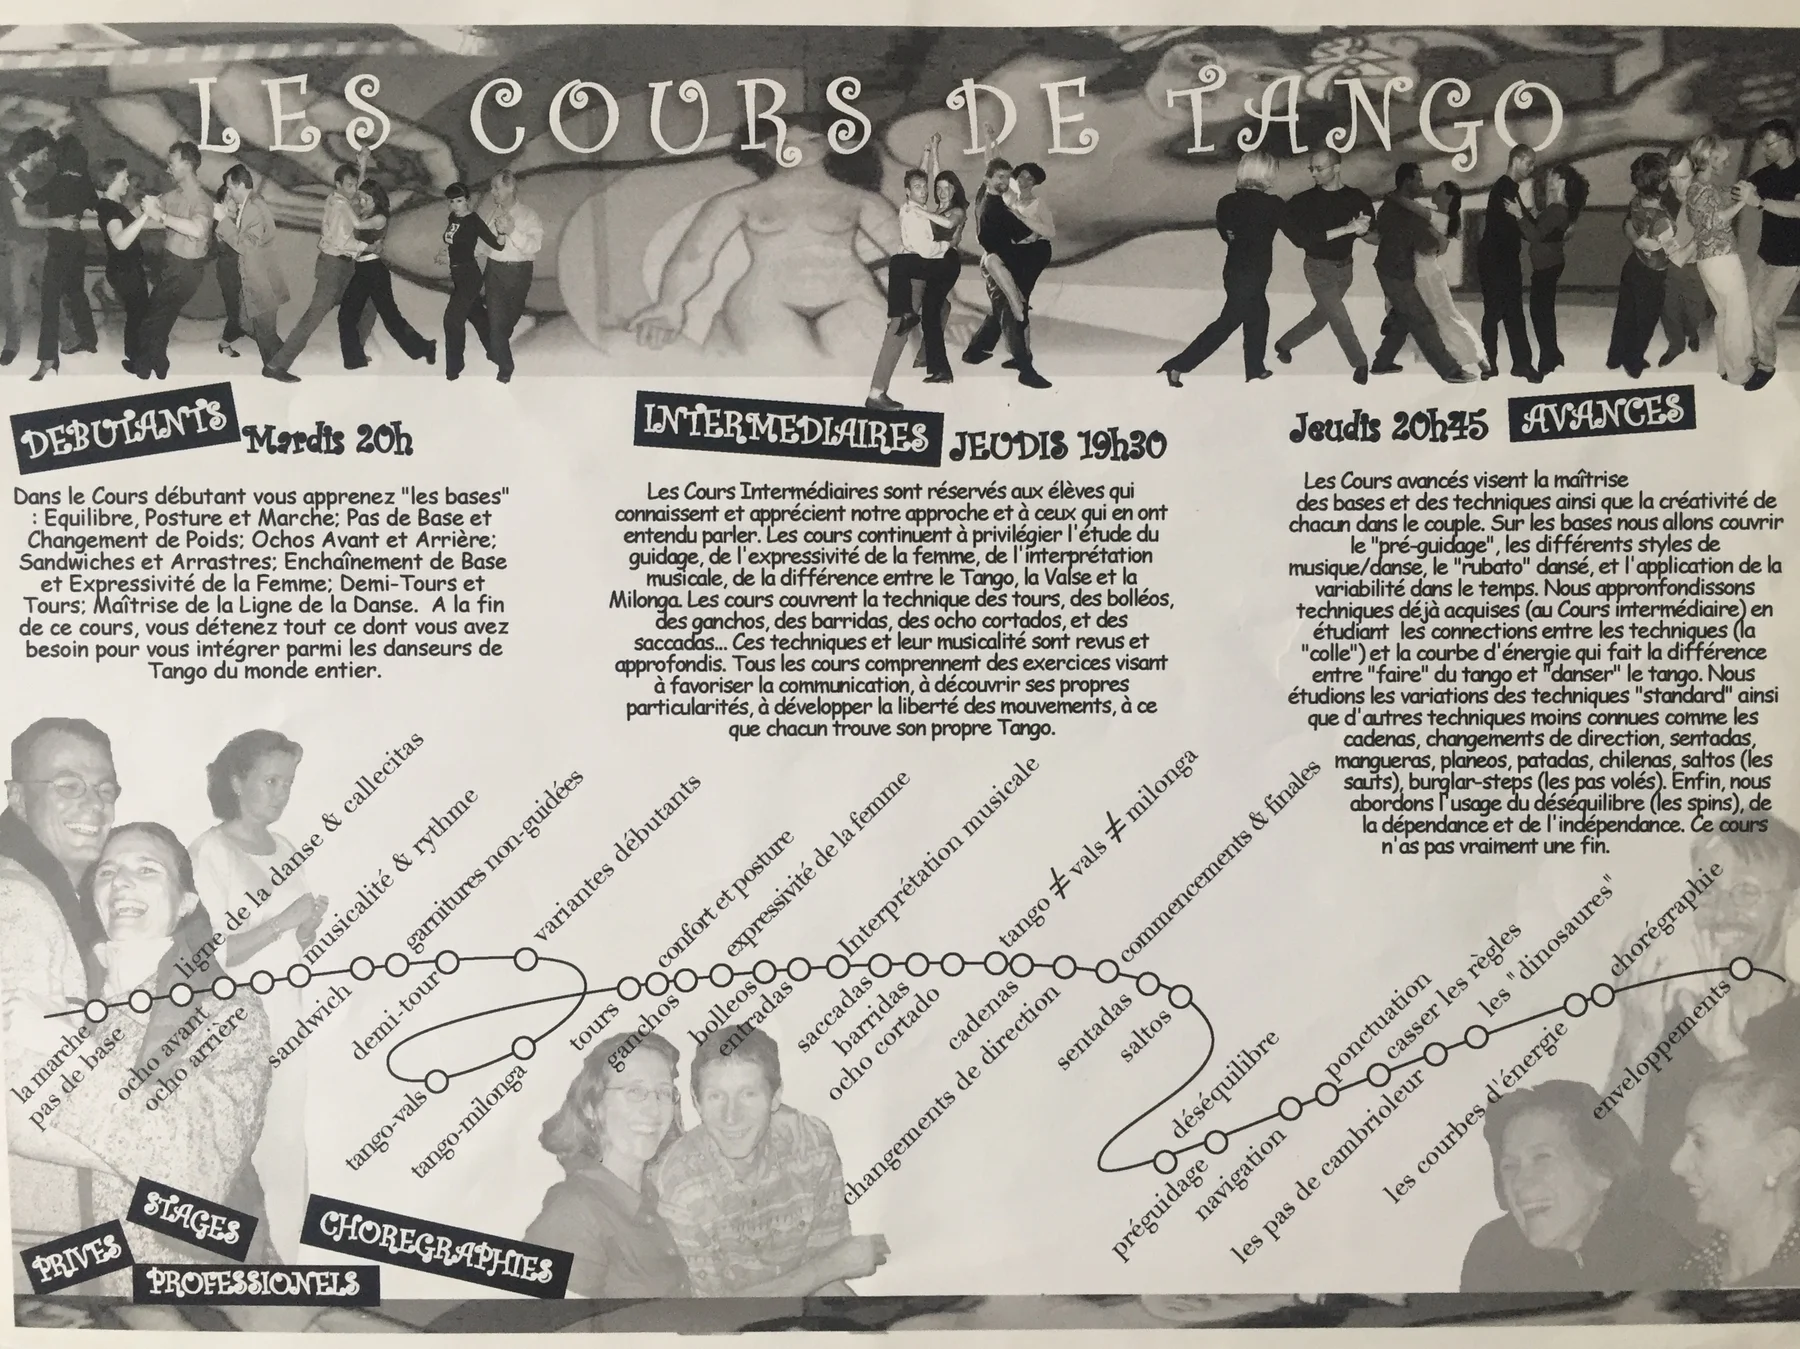 LES COURS DE TANGO
DEBUTANTS Mardis 20h
Dans le Cours débutant vous apprenez "les bases"
: Equilibre, Posture et Marche; Pas de Base et
Changement de Poids; Ochos Avant et Arrière;
Sandwiches et Arrastres; Enchaînement de Base
et Expressivité de la Femme; Demi-Tours et
Tours; Maîtrise de la Ligne de la Danse. A la fin
de ce cours, vous détenez tout ce dont vous avez
besoin pour vous intégrer parmi les danseurs de
Tango du monde entier.
INTERMEDIAIRES JEUDIS 19h30
Les Cours Intermédiaires sont réservés aux élèves qui
connaissent et apprécient notre approche et à ceux qui en ont
entendu parler. Les cours continuent à privilégier l'étude du
guidage, de l'expressivité de la femme, de l'interprétation
musicale, de la différence entre le Tango, la Valse et la
Milonga. Les cours couvrent la technique des tours, des bolléos,
des ganchos, des barridas, des ocho cortados, et des
saccadas... Ces techniques et leur musicalité sont revus et
approfondis. Tous les cours comprennent des exercices visant
à favoriser la communication, à découvrir ses propres
particularités, à développer la liberté des mouvements, à ce
que chacun trouve son propre Tango.
Jeudis 20h45 AVANCES
Les Cours avancés visent la maîtrise
des bases et des techniques ainsi que la créativité de
chacun dans le couple. Sur les bases nous allons couvrir
le "pré-guidage", les différents styles de
musique/danse, le "rubato" dansé, et l'application de la
variabilité dans le temps. Nous appronfondissons
techniques déjà acquises (au Cours intermédiaire) en
étudiant les connections entre les techniques (la
"colle") et la courbe d'énergie qui fait la différence
entre "faire" du tango et "danser" le tango. Nous
étudions les variations des techniques "standard" ainsi
que d'autres techniques moins connues comme les
cadenas, changements de direction, sentadas,
mangueras, planeos, patadas, chilenas, saltos (les
sauts), burglar-steps (les pas volés). Enfin, nous
abordons l'usage du déséquilibre (les spins), de
la dépendance et de l'indépendance. Ce cours
n'as pas vraiment une fin.
la marche
pas de base
ocho avant
ligne de la danse & callecitas
ocho arrière
musicalité & rythme
sandwich
garnitures non-guidées
demi-tour
variantes débutants
tango-milonga
tango-vals
tours
confort et posture
ganchos
expressivité de la femme
bolleos
entradas
Interprétation musicale
saccadas
barridas
ocho cortado
tango ≠ vals ≠ milonga
cadenas
changements de direction
commencements & finales
sentadas
saltos
déséquilibre
préguidage
navigation
ponctuation
casser les règles
les pas de cambrioleur
les "dinosaures"
les courbes d'énergie
chorégraphie
enveloppements
PRIVES
STAGES
PROFESSIONELS
CHOREGRAPHIES